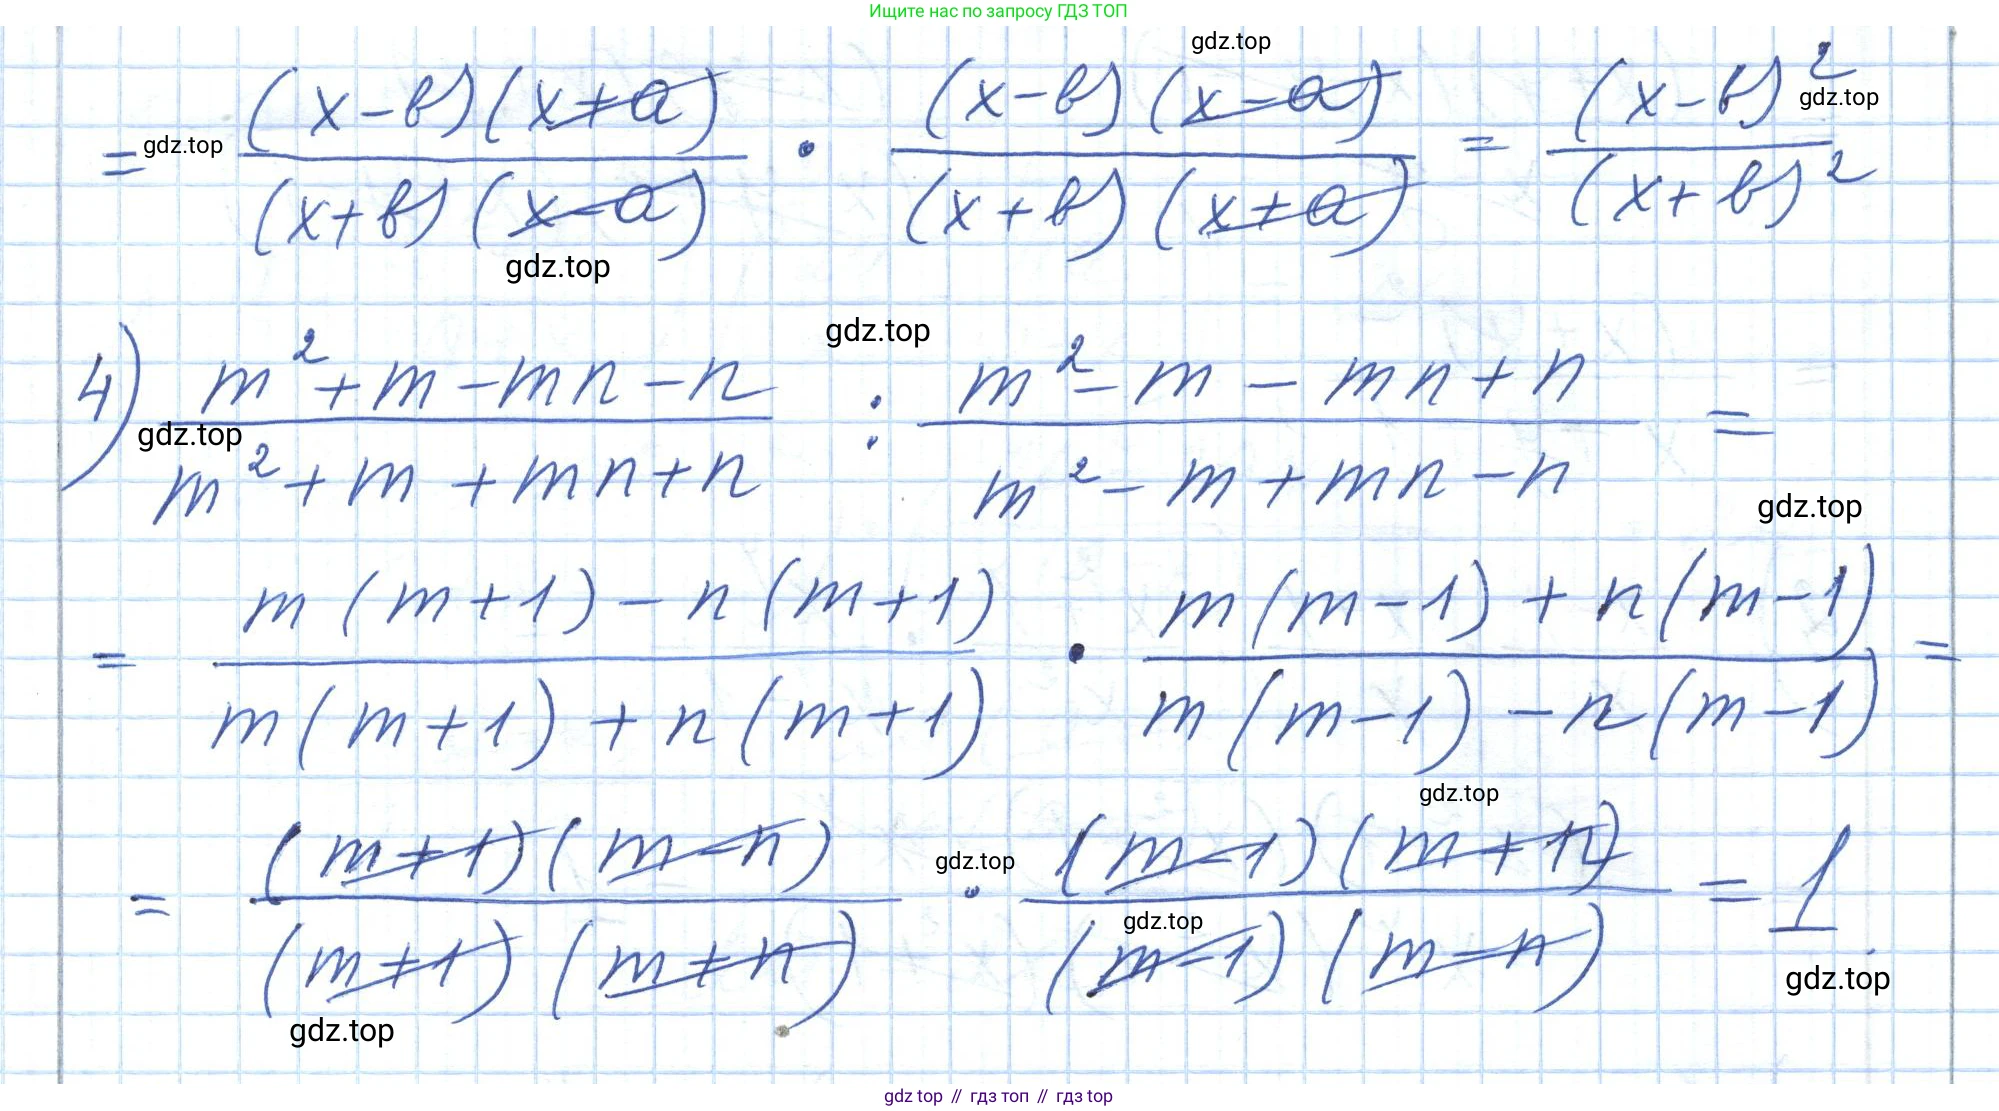 Ищите нас по запросу ГДЗ ТОП
gdz.top
= gdz.top (x-b)(x+a)/(x+b)(x-a) · (x-b)(x-a)/(x+b)(x+a) = (x-b)²/(x+b)² gdz.top
gdz.top
gdz.top
4) m²+m-mn-n/m²+m+mn+n : m²-m-mn+n/m²-m+mn-n =
gdz.top
gdz.top
= m(m+1)-n(m+1)/m(m+1)+n(m+1) · m(m-1)+n(m-1)/m(m-1)-n(m-1) =
gdz.top
= (m+1)(m-n)/(m+1)(m+n) · (m-1)(m+n)/(m-1)(m-n) = 1.
gdz.top
gdz.top
gdz.top
gdz.top
gdz top // гдз топ // гдз top